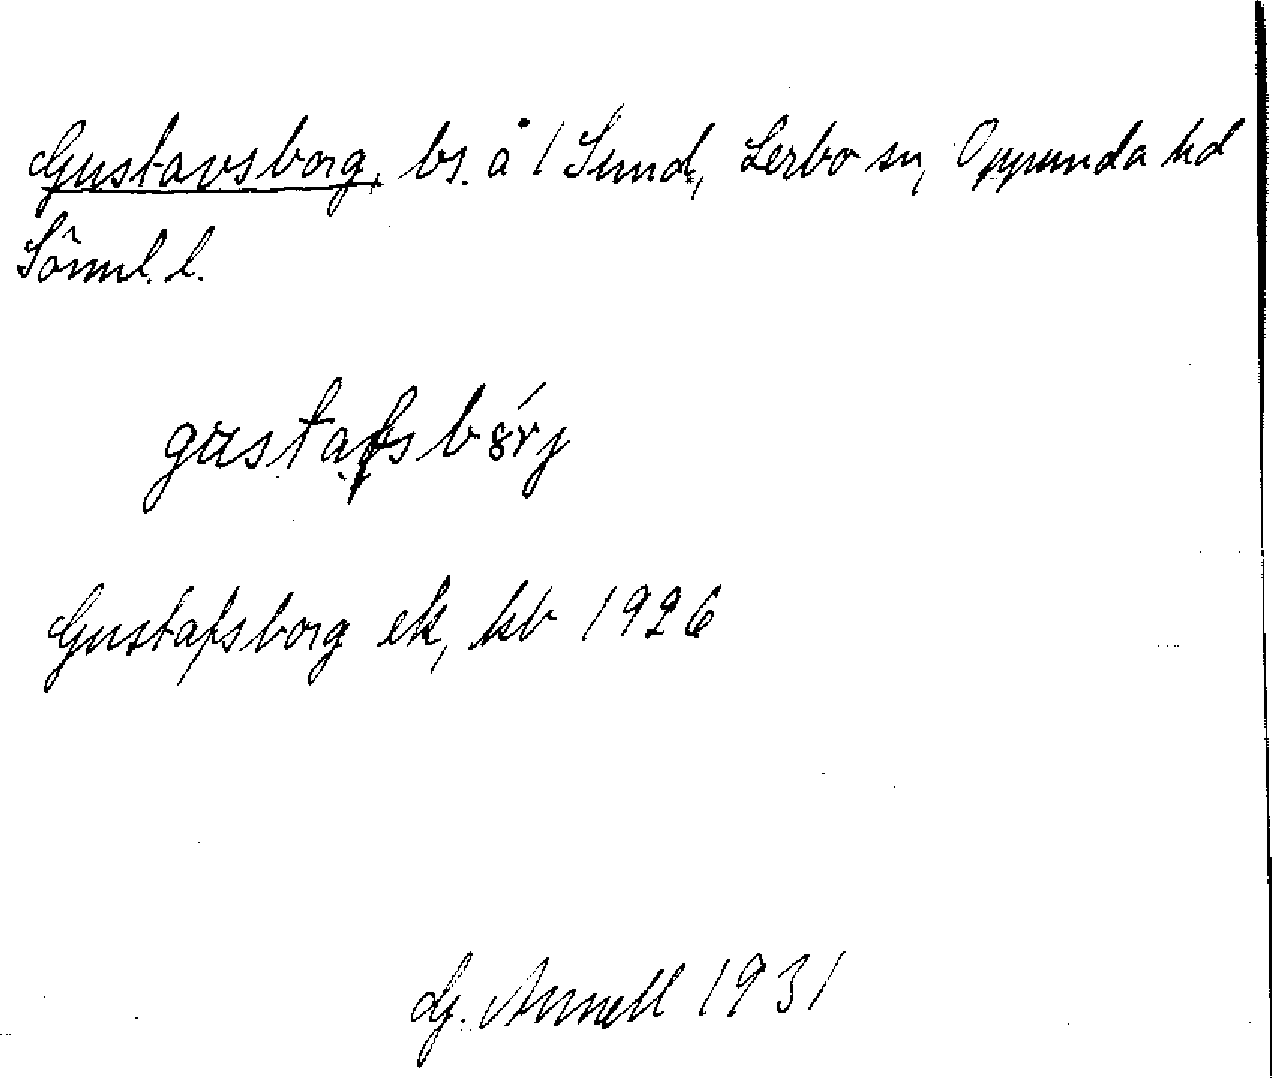 Gustavsborg, bs. å 1 Sund, Lerbo sn, Oppunda hd
Sörml. l.
gustafsbǿrj
Gustafsborg ek, kb 1926
G. Annell 1931